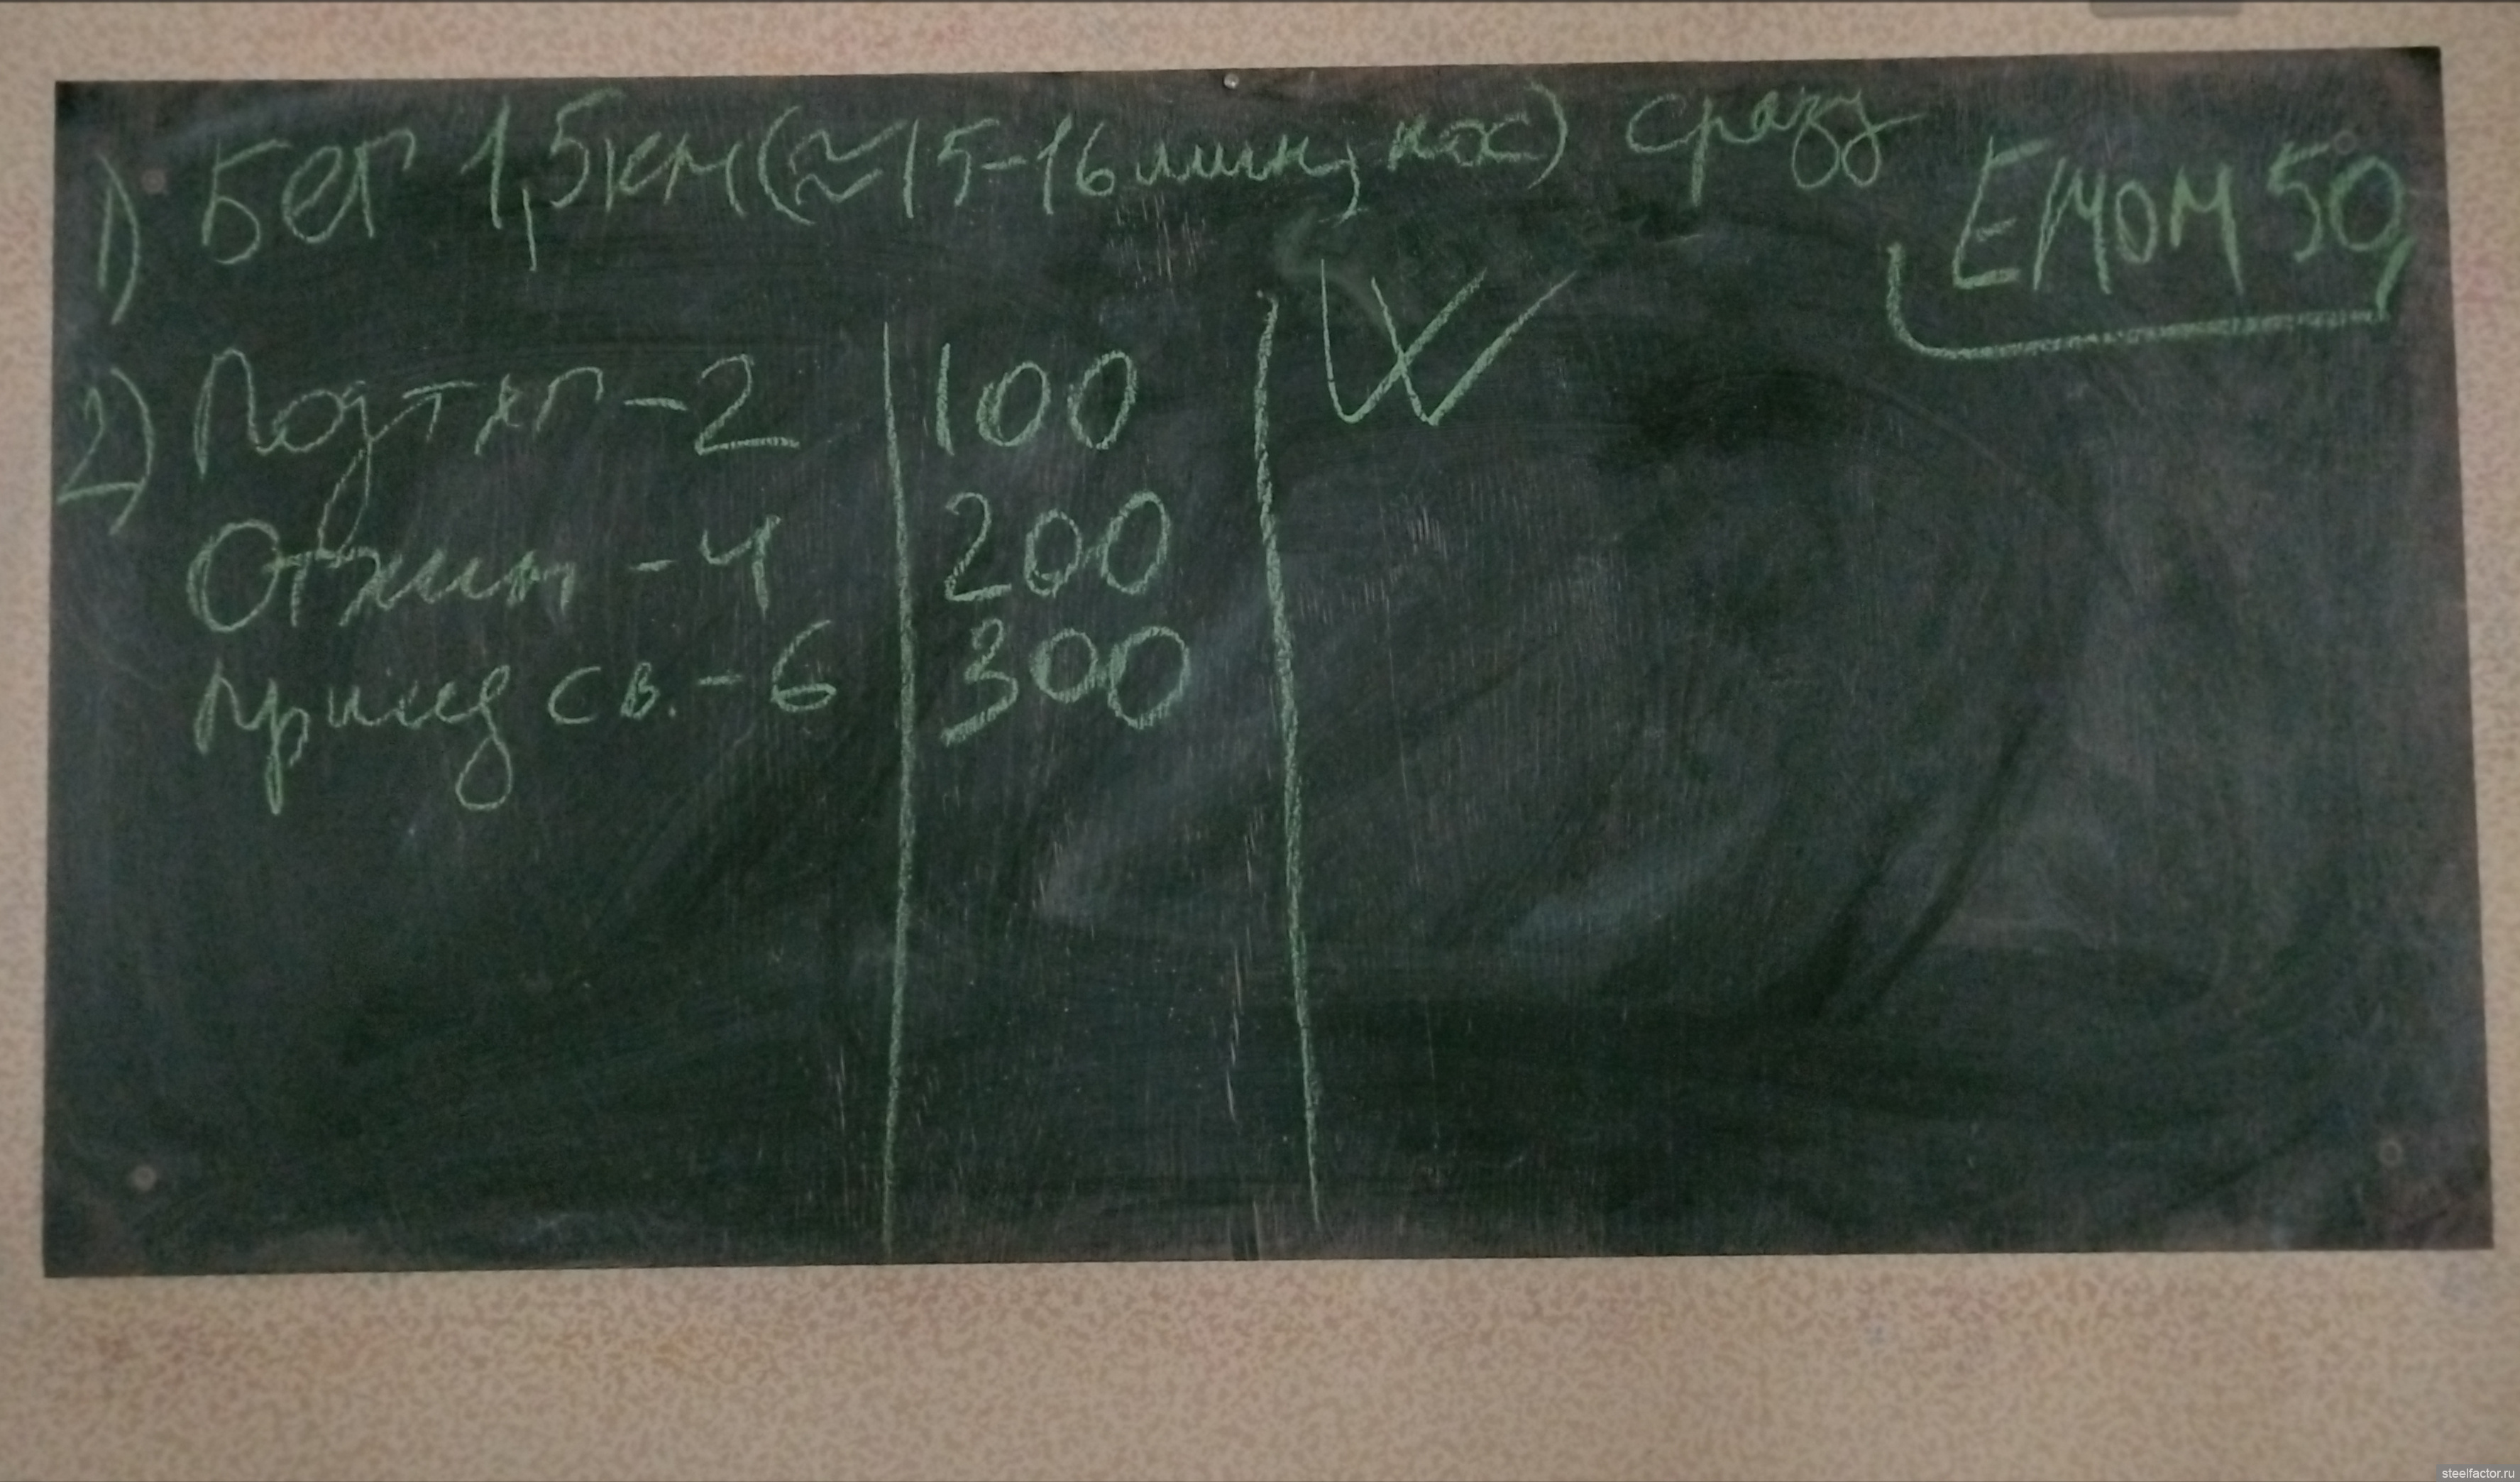 1) Бег 1,5км (≈15-16 мин, нах) сразу
EMOM 50
2) Подтяг - 2 | 100 | W
Отжим - 4 | 200
присед св. - 6 | 300
steelfactor.ru